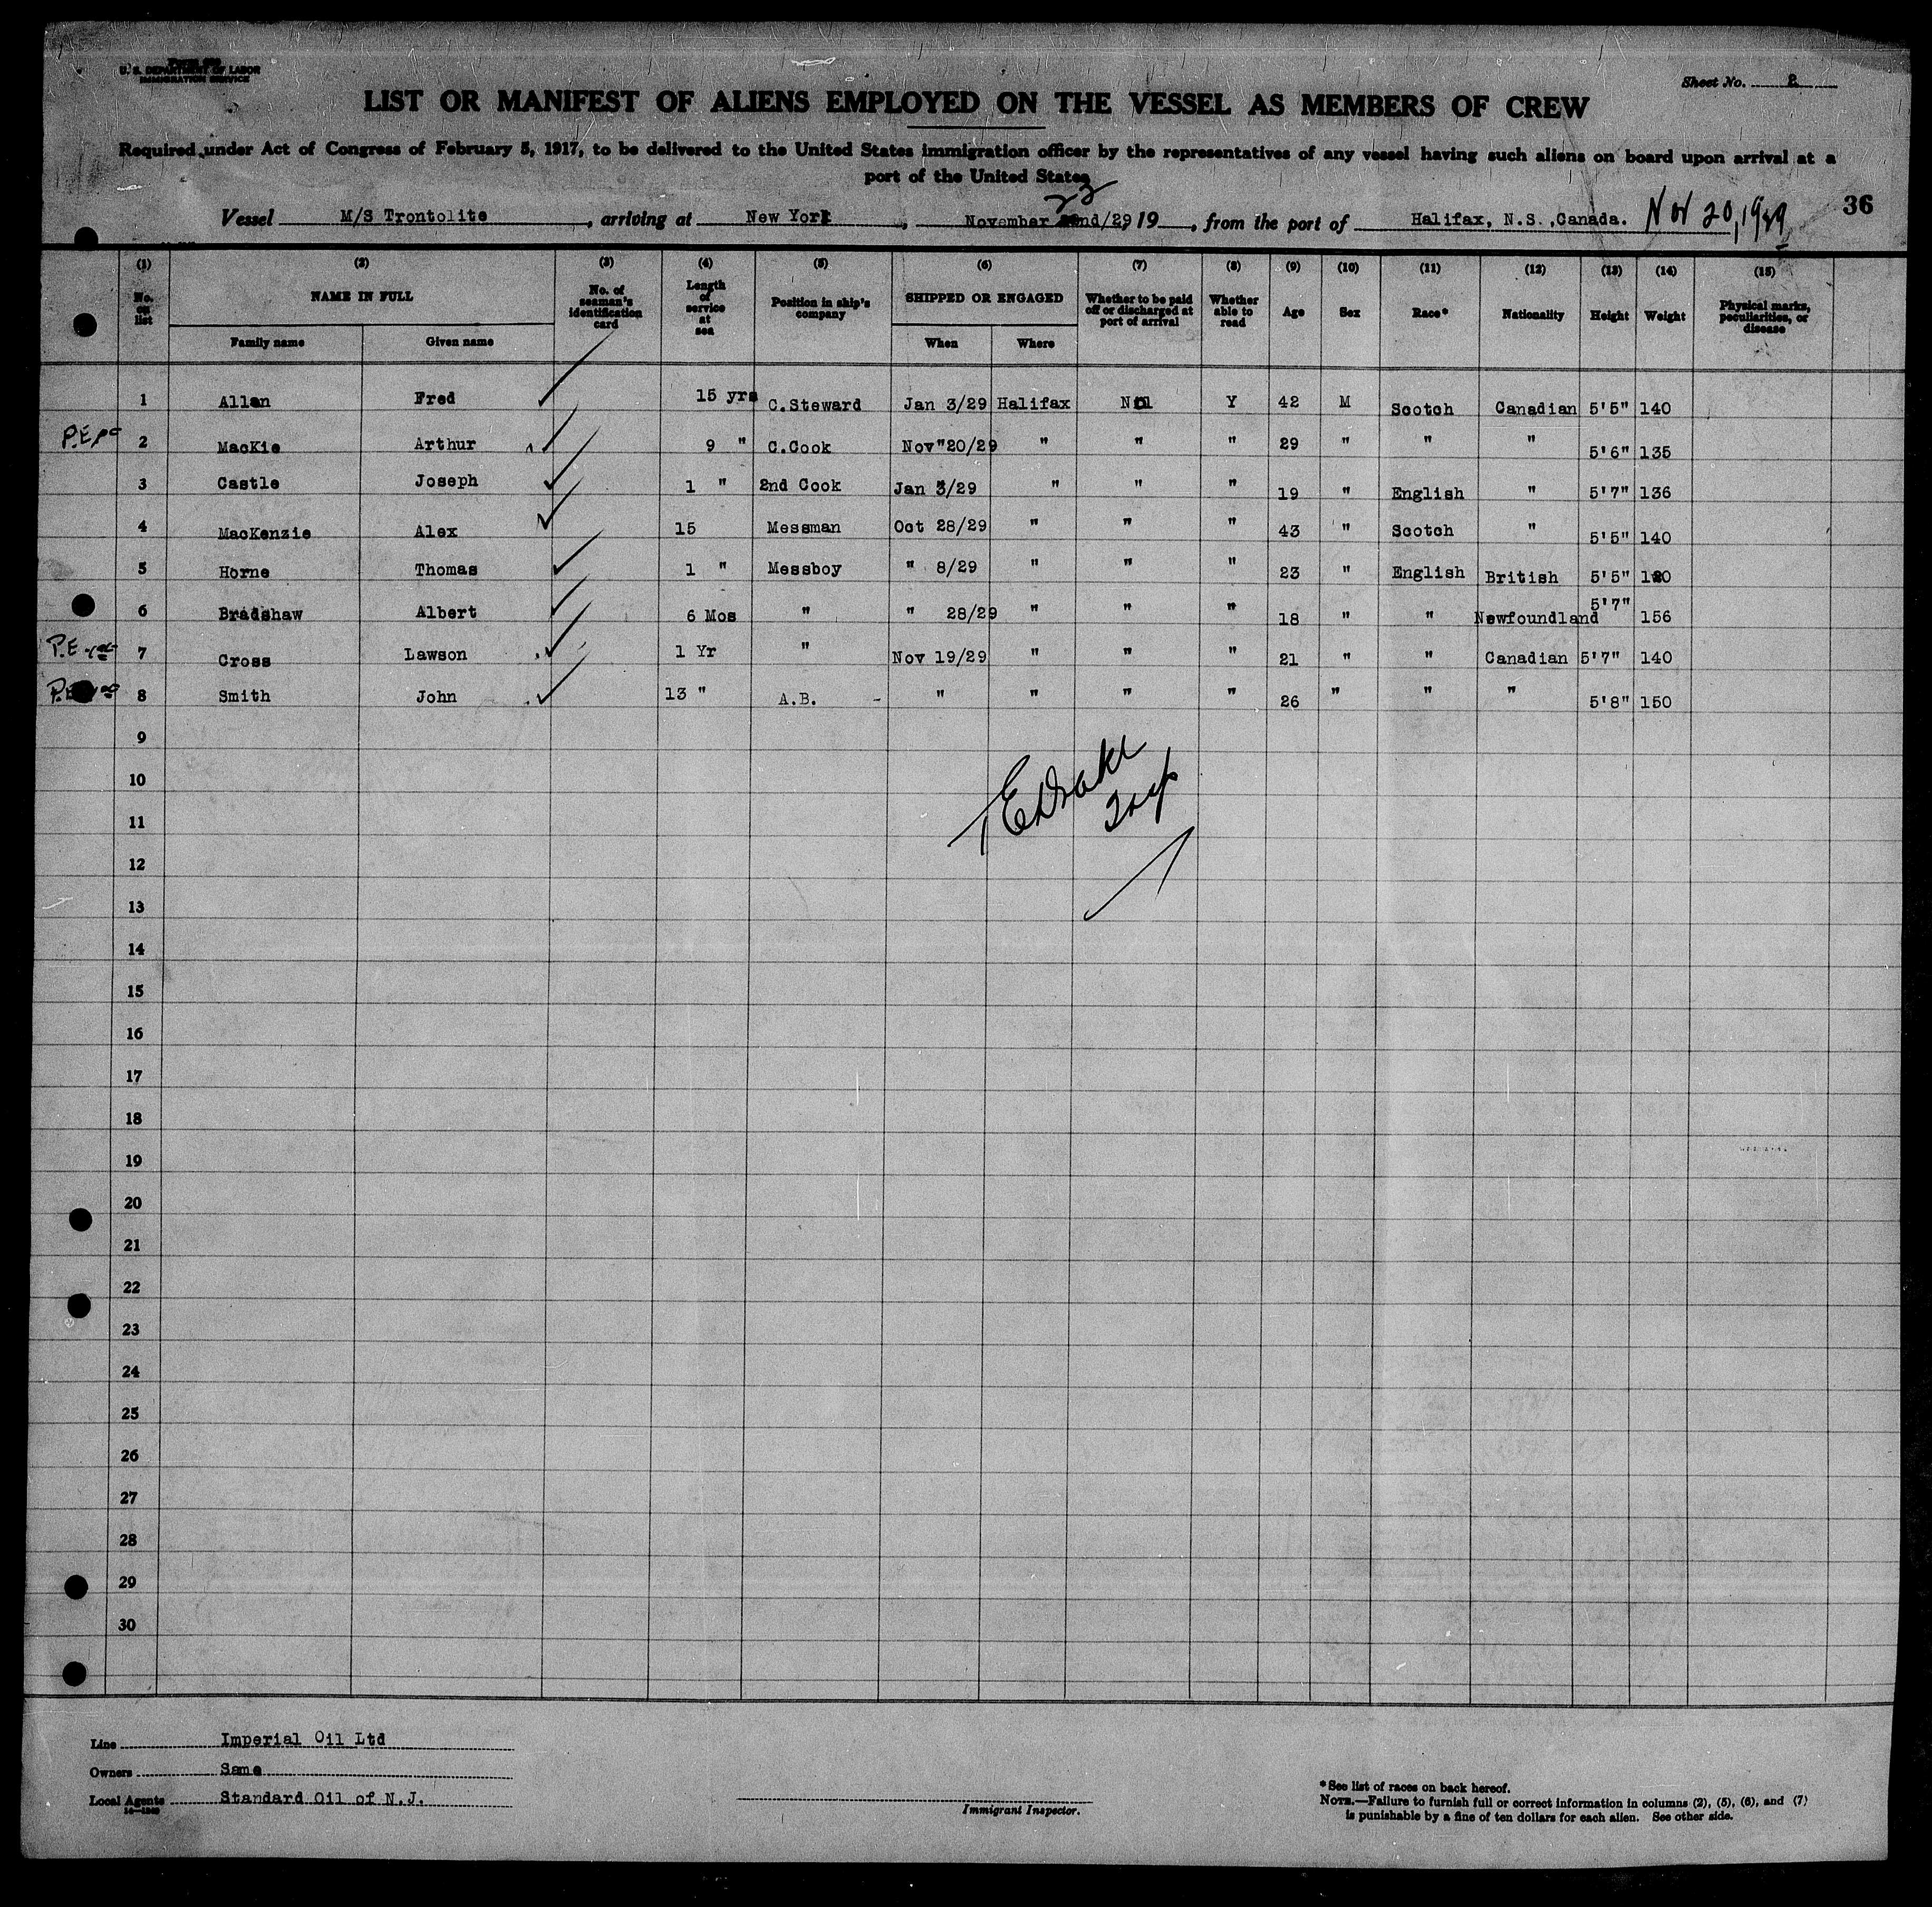 U. S. DEPARTMENT OF LABOR
IMMIGRATION SERVICE
Sheet No. 2
LIST OR MANIFEST OF ALIENS EMPLOYED ON THE VESSEL AS MEMBERS OF CREW
Required under Act of Congress of February 5, 1917, to be delivered to the United States immigration officer by the representatives of any vessel having such aliens on board upon arrival at a
port of the United States
23
Vessel M/S Trontolite, arriving at New York, November 22nd/29, 19, from the port of Halifax, N.S.,Canada. Nov 20, 1929 36
(1) (2) (3) (4) (5) (6) (7) (8) (9) (10) (11) (12) (13) (14) (15)
No. on list NAME IN FULL No. of seaman's identification card Length of service at sea Position in ship's company SHIPPED OR ENGAGED Whether to be paid off or discharged at port of arrival Whether able to read Age Sex Race* Nationality Height Weight Physical marks, peculiarities, or disease
Family name Given name When Where
1 Allan Fred 15 yrs C.Steward Jan 3/29 Halifax Nil Y 42 M Scotch Canadian 5'5" 140
P.E. 2 MacKie Arthur 9 " C.Cook Nov"20/29 " " " 29 " " " 5'6" 135
3 Castle Joseph 1 " 2nd Cook Jan 3/29 " " " 19 " English " 5'7" 136
4 MacKenzie Alex 15 Messman Oct 28/29 " " " 43 " Scotch " 5'5" 140
5 Horne Thomas 1 " Messboy " 8/29 " " " 23 " English British 5'5" 120
6 Bradshaw Albert 6 Mos " " 28/29 " " " 18 " " Newfoundland 5'7" 156
P.E. 7 Cross Lawson 1 Yr " Nov 19/29 " " " 21 " " Canadian 5'7" 140
8 Smith John 13 " A.B. - " " " " 26 " " " 5'8" 150
9
10
11
12
13
14
15
16
17
18
19
20
21
22
23
24
25
26
27
28
29
30
Line Imperial Oil Ltd
Owners Same
Local Agents Standard Oil of N.J.
Immigrant Inspector.
*See list of races on back hereof.
NOTE.—Failure to furnish full or correct information in columns (2), (5), (6), and (7)
is punishable by a fine of ten dollars for each alien. See other side.